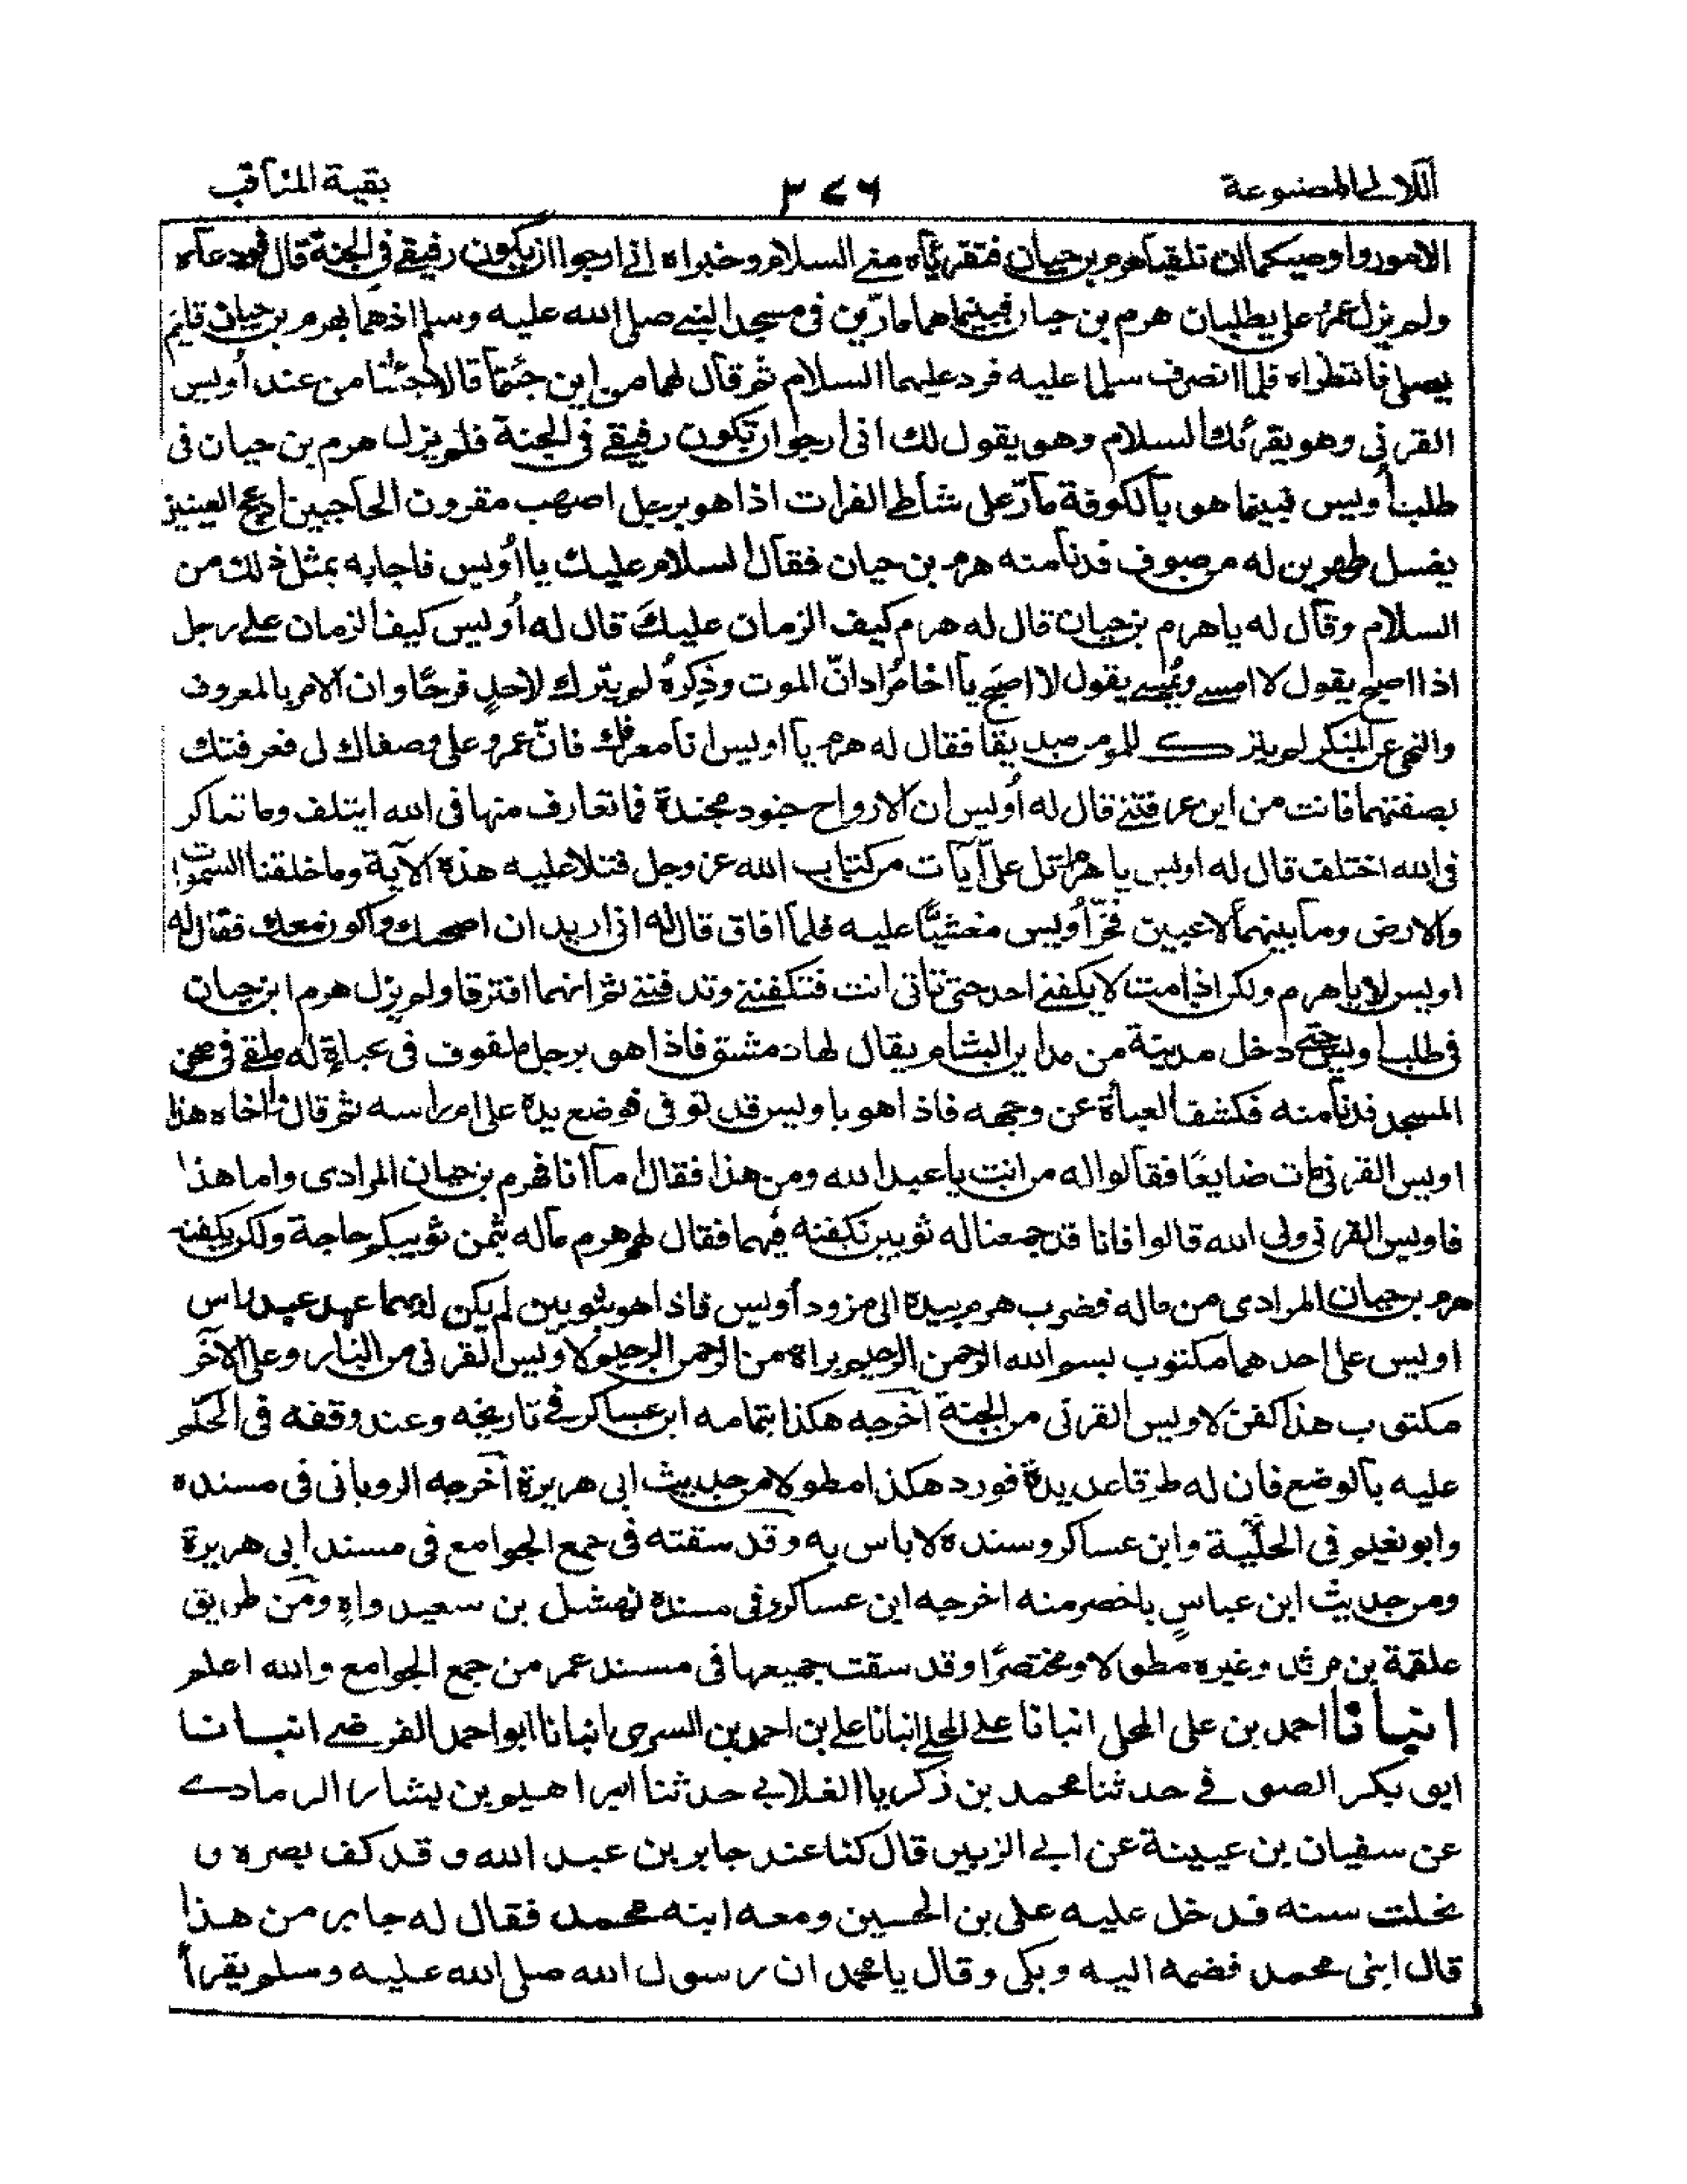 اللآلی المصنوعة ٣٧٦ بقیة المناقب
الامور واوصیکما ان تلقیا هرم بن حیان فتقرئاه منی السلام وخبراه انی ارجوا ان یکون رفیقی فی الجنة قال فودعاه
ولم یزل عمر وعلی یطلبان هرم بن حیان فبینما هما مارّین فی مسجد النبی صلی الله علیه وسلم اذهما بهرم بن حیان قایم
یصلی فانتظراه فلما انصرف سلما علیه فرد علیهما السلام ثم قال لهما من این جئتما قالا جئنا من عند أویس
القرنی وهو یقرئك السلام وهو یقول لك انی ارجوا ان تکون رفیقی فی الجنة فلم یزل هرم بن حیان فی
طلب أویس فبینما هو بالکوفة مارّ علی شاطی الفرات اذا هو برجل اصهب مقرون الحاجبین ادعج العینین
یغسل طمرین له من صوف فدنا منه هرم بن حیان فقال السلام علیك یا أویس فاجابه بمثل ذلك من
السلام وقال له یا هرم بن حیان قال له هرم کیف الزمان علیكَ قال له أویس کیف الزمان علی رجل
اذا اصبح یقول لا امسی ویُمسی یقول لا اصبح یا اخا مُراد انّ الموت وذِکرهُ لم یترك لاحدٍ فرحًا وان الامر بالمعروف
والنهی عن المنکر لم یترك للمومن صدیقا فقال له هرم یا اویس انا معرفك فانّ عمر وعلی وصفاك لی فعرفتك
بصفتهما فانت من این عرفتنی قال له أویس ان الارواح جنود مجندة فما تعارف منها فی الله ایتلف وما تناکر
فی الله اختلف قال له اویس یا هرم اتل علیّ آیات من کتاب الله عز وجل فتلا علیه هذه الآیة وما خلقنا السموات
والارض وما بینهما لاعبین فخرّ أویس مغشیًّا علیه فلما افاق قال له انی ارید ان اصحبك واکون معك فقال له
اویس لا یا هرم ولکن اذا مت لا یکفنی احد حتی تاتی انت فتکفننی وتدفننی ثم انهما افترقا ولم یزل هرم ابن حیان
فی طلب اویس حتی دخل مدینة من مداین الشام یقال لها دمشق فاذا هو برجل ملفوف فی عباءةٍ له ملقی فی صحن
المسجد فدنا منه فکشف العباءة عن وجهه فاذا هو باویس قد توفی فوضع یده علی ام راسه ثم قال وا اخاه هذا
اویس القرنی مات ضایعًا فقالوا له من انت یا عبد الله ومن هذا فقال اما انا فهرم بن حیان المرادی واما هذا
فاویس القرنی ولی الله قالوا فانا قد جمعنا له ثوبین نکفنه فیهما فقال لهم هرم ماله بثمن ثوبیکم حاجة ولکن یکفنه
هرم بن حیان المرادی من ماله فضرب هرم بیده الی مزود أویس فاذا هو بثوبین لم یکن لهما عهد عند راس
اویس علی احدهما مکتوب بسم الله الرحمن الرحیم براة من الرحمن الرحیم لاویس القرنی من النار وعلی الآخر
مکتوب هذا کفن لاویس القرنی من الجنة اخرجه هکذا بتمامه ابن عساکر فی تاریخه وعند وقفه فی الحکم
علیه بالوضع فان له طرقا عدیدة فورد هکذا مطولا من حدیث ابی هریرة اخرجه الرویانی فی مسنده
وابو نعیم فی الحلیة وابن عساکر وسنده لا باس به وقد سقته فی جمع الجوامع فی مسند ابی هریرة
ومن حدیث ابن عباسٍ باخصر منه اخرجه ابن عساکر وفی مسنده نهشل بن سعید واهٍ ومن طریق
علقمة بن مرثد وغیره مطولا ومختصرًا وقد سقت جمیعها فی مسند عمر من جمع الجوامع والله اعلم
انبانا احمد بن علی المحلی انبانا علی المحلی انبانا علی بن احمد بن السری انبانا ابو احمد الفرضی انبانا
ابو بکر الصولی حدثنا محمد بن زکریا الغلابی حدثنا ابراهیم بن بشار الرمادی
عن سفیان بن عیینة عن ابی الزبیر قال کنا عند جابر بن عبد الله وقد کف بصره و
علت سنه فدخل علیه علی بن الحسین ومعه ابنه محمد فقال له جابر من هذا
قال ابنی محمد فضمه الیه وبکی وقال یا محمد ان رسول الله صلی الله علیه وسلم یقرأ